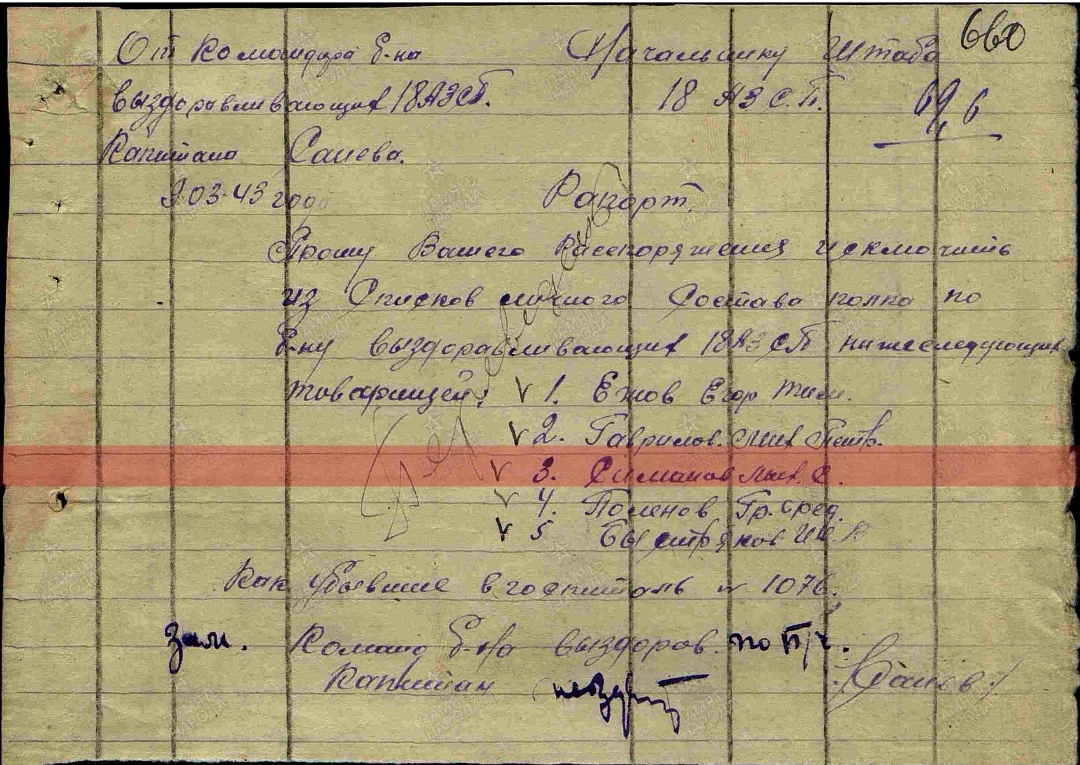 660
От Командира б-на Начальнику Штаба
выздоравливающих 18АЗСП. 18 АЗС.П.
Капитана Саиева.
9.03.43 года Рапорт.
Прошу Вашего Распоряжения исключить
из Списков личного Состава полка по
б-ну выздоравливающих 18АЗСП нижеследующих
товарищей: V 1. Ежов Егор Тим.
V 2. Гаврилов. Мих Петр.
V 3. Симанов С.
V 4. Поленов Гр.
V 5 Быстряков
Как Убывшие в госпиталь № 1076.
Зам. Команд б-на выздоров. по П/ч.
Капитан /Саиев/